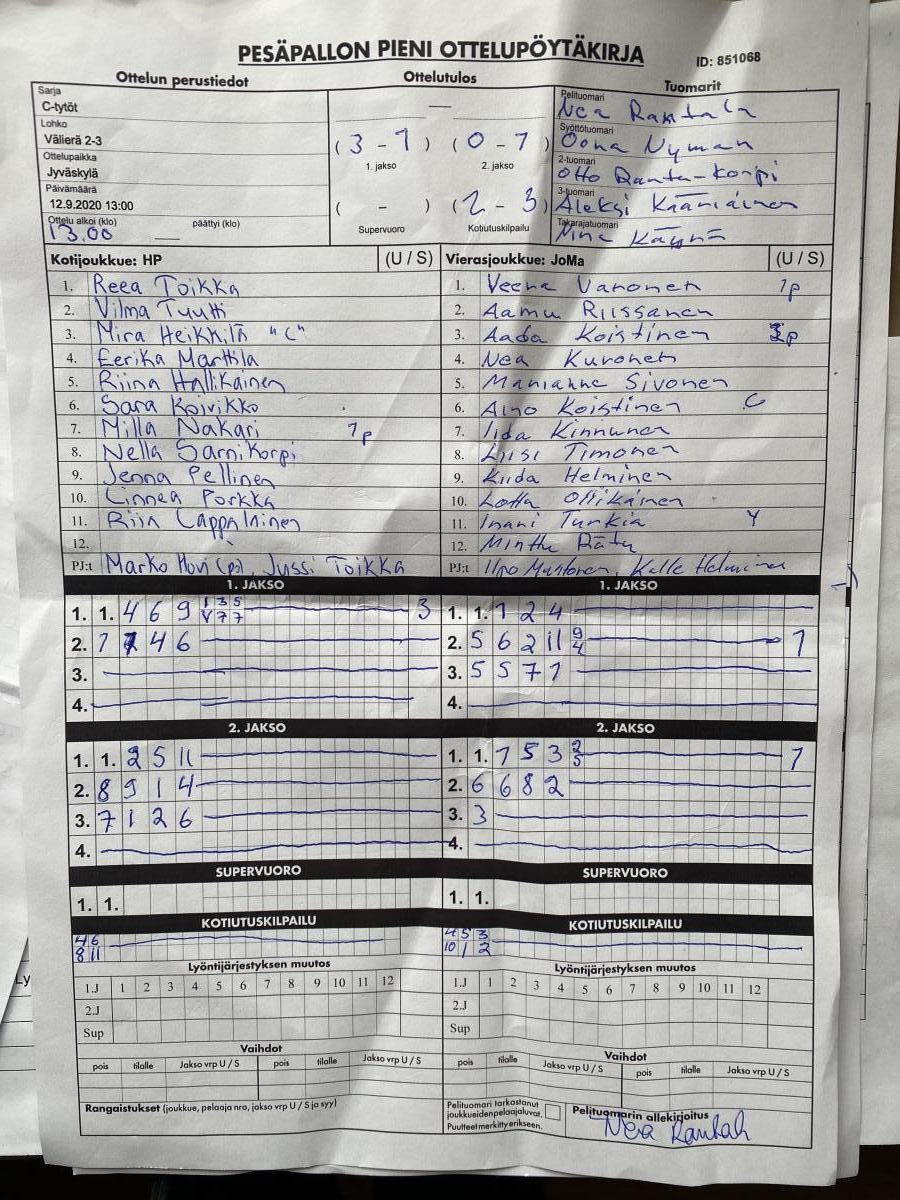 PESÄPALLON PIENI OTTELUPÖYTÄKIRJA
ID: 851068
Ottelun perustiedot
Ottelutulos
Tuomarit
Sarja
C-tytöt
Lohko
Välierä 2-3
Ottelupaikka
Jyväskylä
Päivämäärä
12.9.2020 13:00
Ottelu alkoi (klo) päättyi (klo)
13.00
—
( 3 - 1 ) ( 0 - 1 )
1. jakso 2. jakso
( - ) ( 2 - 3 )
Supervuoro Kotiutuskilpailu
Pelituomari
Nea Rantala
Syöttötuomari
Oona Nyman
2-tuomari
Otto Ranta-Korpi
3-tuomari
Aleksi Kääriäinen
Takarajatuomari
Kotijoukkue: HP (U / S)
1. Reea Toikka
2. Vilma Tuutti
3. Mira Heikkilä "C"
4. Eerika Marttila
5. Riina Hallikainen
6. Sara Koivikko
7. Milla Nakari 1p
8. Nella Sarnikorpi
9. Jenna Pellinen
10. Linnea Porkka
11. Riia Lappalainen
12.
PJ:t Marko Hovi (pj), Jussi Toikka
Vierasjoukkue: JoMa (U / S)
1. Veera Varonen 1p
2. Aamu Riissanen
3. Aada Koistinen p
4. Nea Kuronen
5. Marianne Sivonen
6. Aino Koistinen C
7. Iida Kinnunen
8. Liisi Timonen
9. Kiida Helminen
10. Lotta Ollikainen
11. Inari Turkia Y
12. Minttu Räty
PJ:t Ilpo Mustonen, Kalle Helminen
1. JAKSO
1. 1. 4 6 9 1 3 5 3
V 7 7
2. 1 4 6
3.
4.
1. JAKSO
1. 1. 1 2 4
2. 5 6 2 11 9 1
4
3. 5 5 7 1
4.
2. JAKSO
1. 1. 2 5 11
2. 8 9 1 4
3. 7 1 2 6
4.
2. JAKSO
1. 1. 1 5 3 2 1
5
2. 6 6 8 2
3. 3
4.
SUPERVUORO
1. 1.
SUPERVUORO
1. 1.
KOTIUTUSKILPAILU
4 6
8 11
KOTIUTUSKILPAILU
4 5 3
10 1 2
Lyöntijärjestyksen muutos
1.J 1 2 3 4 5 6 7 8 9 10 11 12
2.J
Sup
Lyöntijärjestyksen muutos
1.J 1 2 3 4 5 6 7 8 9 10 11 12
2.J
Sup
Vaihdot
pois tilalle Jakso vrp U / S pois tilalle Jakso vrp U / S
Vaihdot
pois tilalle Jakso vrp U / S pois tilalle Jakso vrp U / S
Rangaistukset (joukkue, pelaaja nro, jakso vrp U / S ja syy)
Pelituomari tarkastanut
joukkueidenpelaajaluvat.
Puutteet merkitty erikseen.
Pelituomarin allekirjoitus
Nea Rantala
Ly